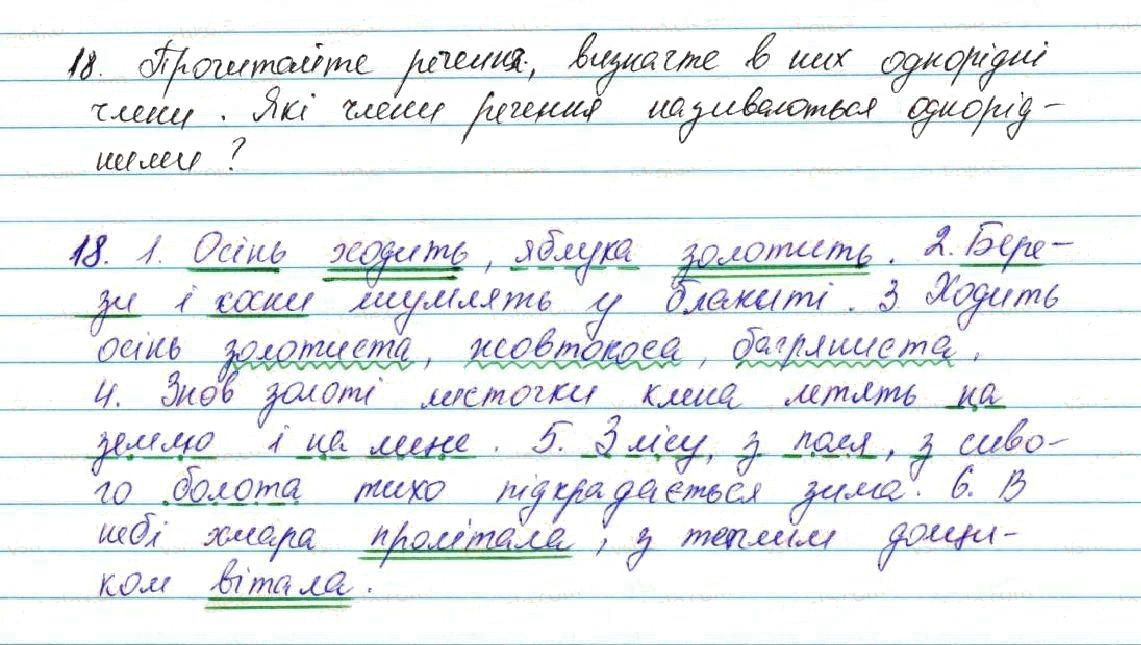 18. Прочитайте речення, визначте в них однорідні
члени. Які члени речення називаються однорід-
ними?
18. 1. Осінь ходить, яблука золотить. 2. Бере-
зи і хаски шумлять у блакиті. 3 Ходить
осінь золотиста, жовтокоса, багряниста.
4. Знов золоті листочки клена летять на
землю і на мене. 5. З лісу, з поля, з сиво-
го болота тихо підкрадається зима. 6. В
небі хмара пролітала, з теплим дощи-
ком вітала.